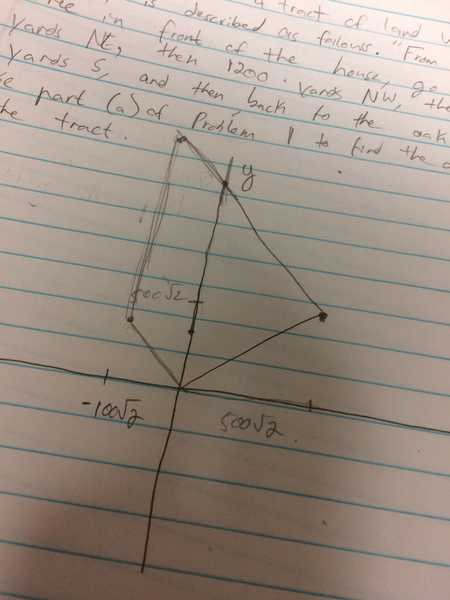 is described as follows. "From
in front of the house, go
yards NE, then 1200 yards NW, the
yards S, and then back to the oak
part (a) of Problem 1 to find the
the tract.
y
500√2
-100√2
500√2